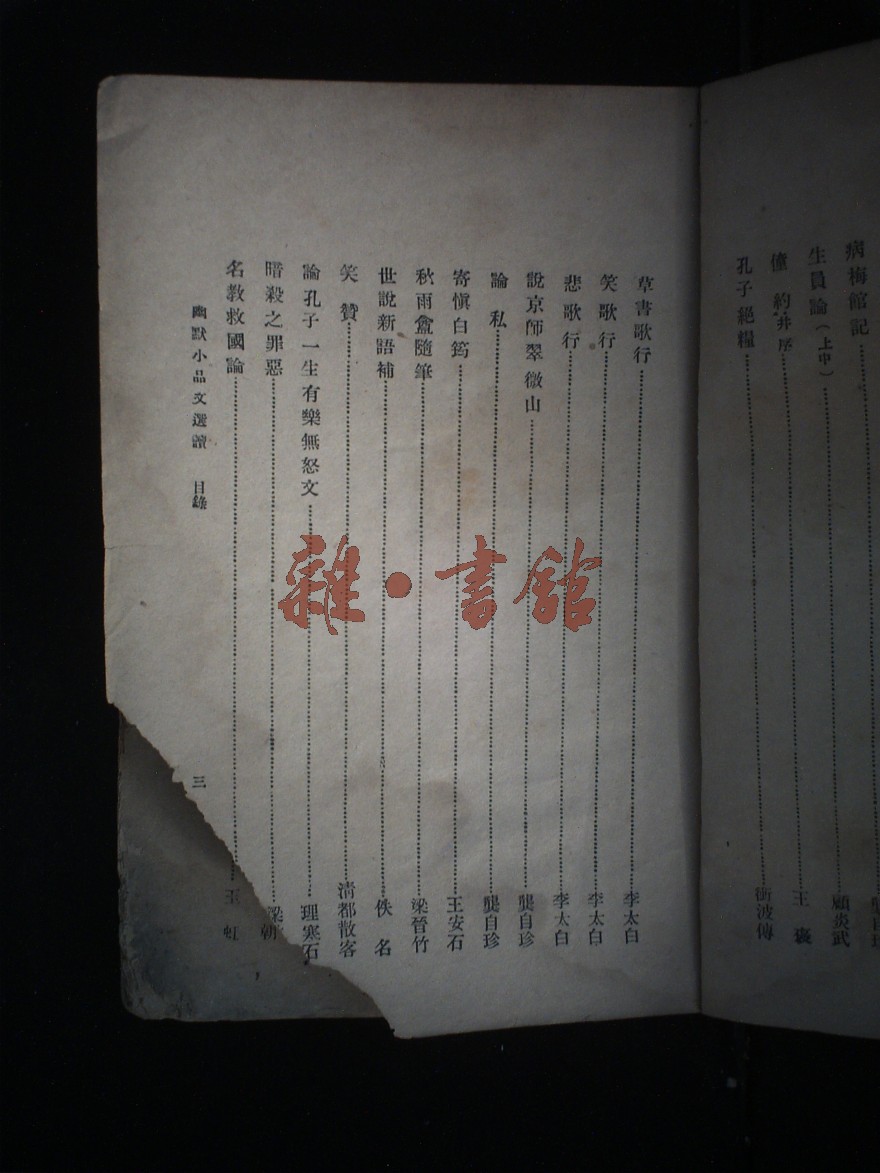 病梅館記……龔自珍
生員論（上中）……顧炎武
僮約并序……王褒
孔子絕糧……衝波傳
草書歌行……李太白
笑歌行……李太白
悲歌行……李太白
說京師翠微山……龔自珍
論私……龔自珍
寄慎白筠……王安石
秋雨盦隨筆……梁晉竹
世說新語補……佚名
笑贊……清都散客
論孔子一生有樂無怒文……理寒石
暗殺之罪惡……梁朝
名教救國論……王虹
幽默小品文選讀 目錄 三
雜·書館